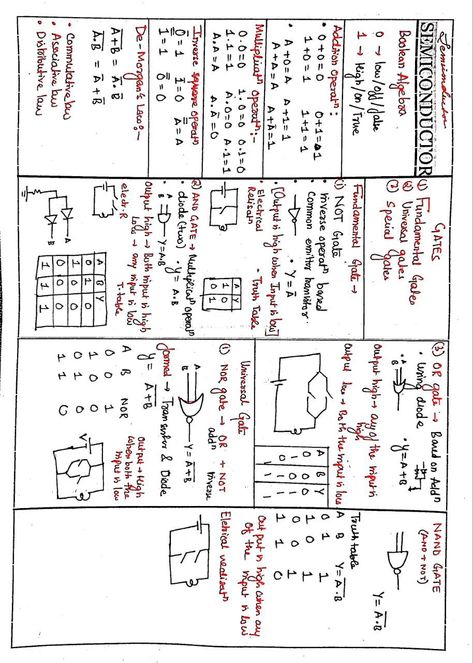 Semiconductor
SEMICONDUCTOR
Boolean Algebra
0 → low/off/false
1 → High/on/True
Addition operatⁿ:
• 0+0=0 0+1=1
1+0=1 1+1=1
A+0=A A+1=1
A+A=A A+Ā=1
Multiplicatⁿ operatⁿ:-
0.0=0 1.0=0 0.1=0
1.1=1 A.0=0 A.1=A
A.A=A A.Ā=0
Inverse operatⁿ
0̅=1 1̅=0 A̿=A
De-Morgan's Law:-
A̅+̅B̅ = A̅.B̅
A̅.̅B̅ = A̅+B̅
• Commutative law
• Associative law
• Distributive law
GATES
① Fundamental Gates
② Universal gates
③ Special Gates
Fundamental Gate →
① NOT Gate
• Inverse operatⁿ based
• Common emitter transistor
• Y=Ā
• [Output is high when Input is low]
Electrical Realisatⁿ
• Truth Table
A Y
0 1
1 0
② AND GATE → Multiplicatⁿ operatⁿ
• diode (two) • Y=A.B
A
B
Y=A.B
Output high → Both input is high
low → any input is low
electr. R
T-table
A B Y
0 0 0
0 1 0
1 0 0
1 1 1
A
B
③ OR gate → Based on Addⁿ
• Using diode
A
B
• Y=A+B
Output high → any of the input is high
Output low → Both the input is low
A B Y
0 0 0
0 1 1
1 0 1
1 1 1
Universal Gate
① NOR gate → OR + NOT
addⁿ Inverse
A
B
Y=A̅+̅B̅
y = A̅+̅B̅
formed → Transistor & Diode
A B NOR
0 0 1
0 1 0
1 0 0
1 1 0
Output → High when both the Input is low
NAND GATE
(AND + NOT)
Y=A̅.̅B̅
Truth table
A B Y=A̅.̅B̅
0 0 1
0 1 1
1 0 1
1 1 0
Output is high when any of the input is low
Eletrical realisatⁿ